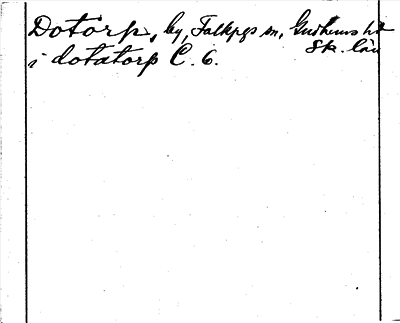 Dotorp, by, Falkpgs sn, Gudhems hd
Sk. län
i dotatorp C. 6.